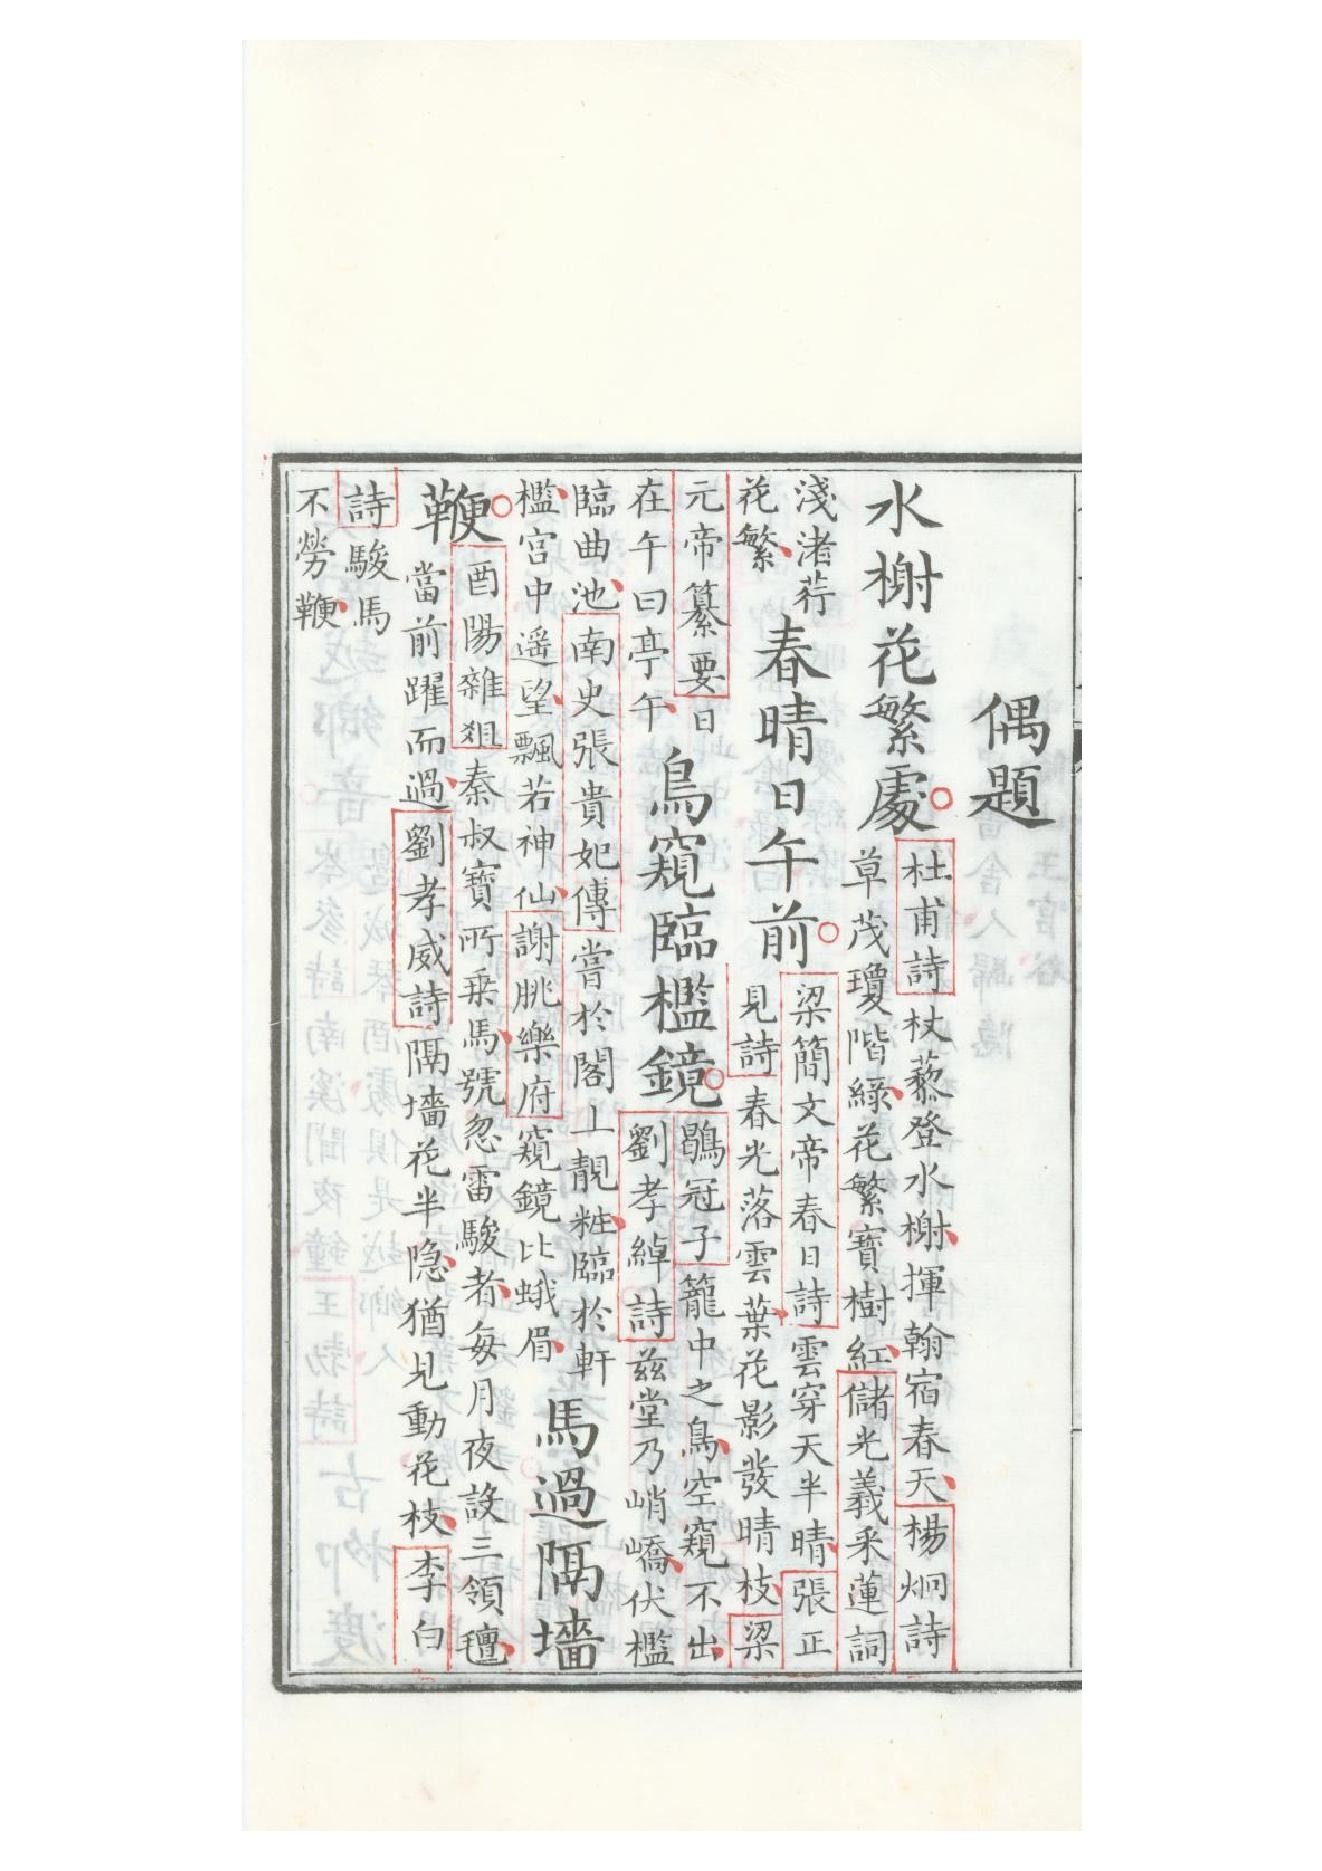 偶題
水榭花繁處
杜甫詩杖藜登水榭揮翰宿春天楊炯詩
草茂瓊階綠花繁寶樹紅儲光義采蓮詞
淺渚荇
花繁
春晴日午前
梁簡文帝春日詩雲穿天半晴張正
見詩春光落雲葉花影發晴枝梁
元帝纂要日
在午曰亭午
鳥窺臨檻鏡
鶡冠子籠中之鳥空窺不出
劉孝綽詩茲堂乃峭嶠伏檻
臨曲池南史張貴妃傳嘗於閣上靚粧臨於軒
檻宮中遥望飄若神仙謝朓樂府窺鏡比蛾眉
馬過隔墻
鞭
酉陽雜俎秦叔寶所乗馬號忽雷駿者每月夜設三領氊
當前躍而過劉孝威詩隔墻花半隐猶見動花枝李白
詩駿馬
不勞鞭